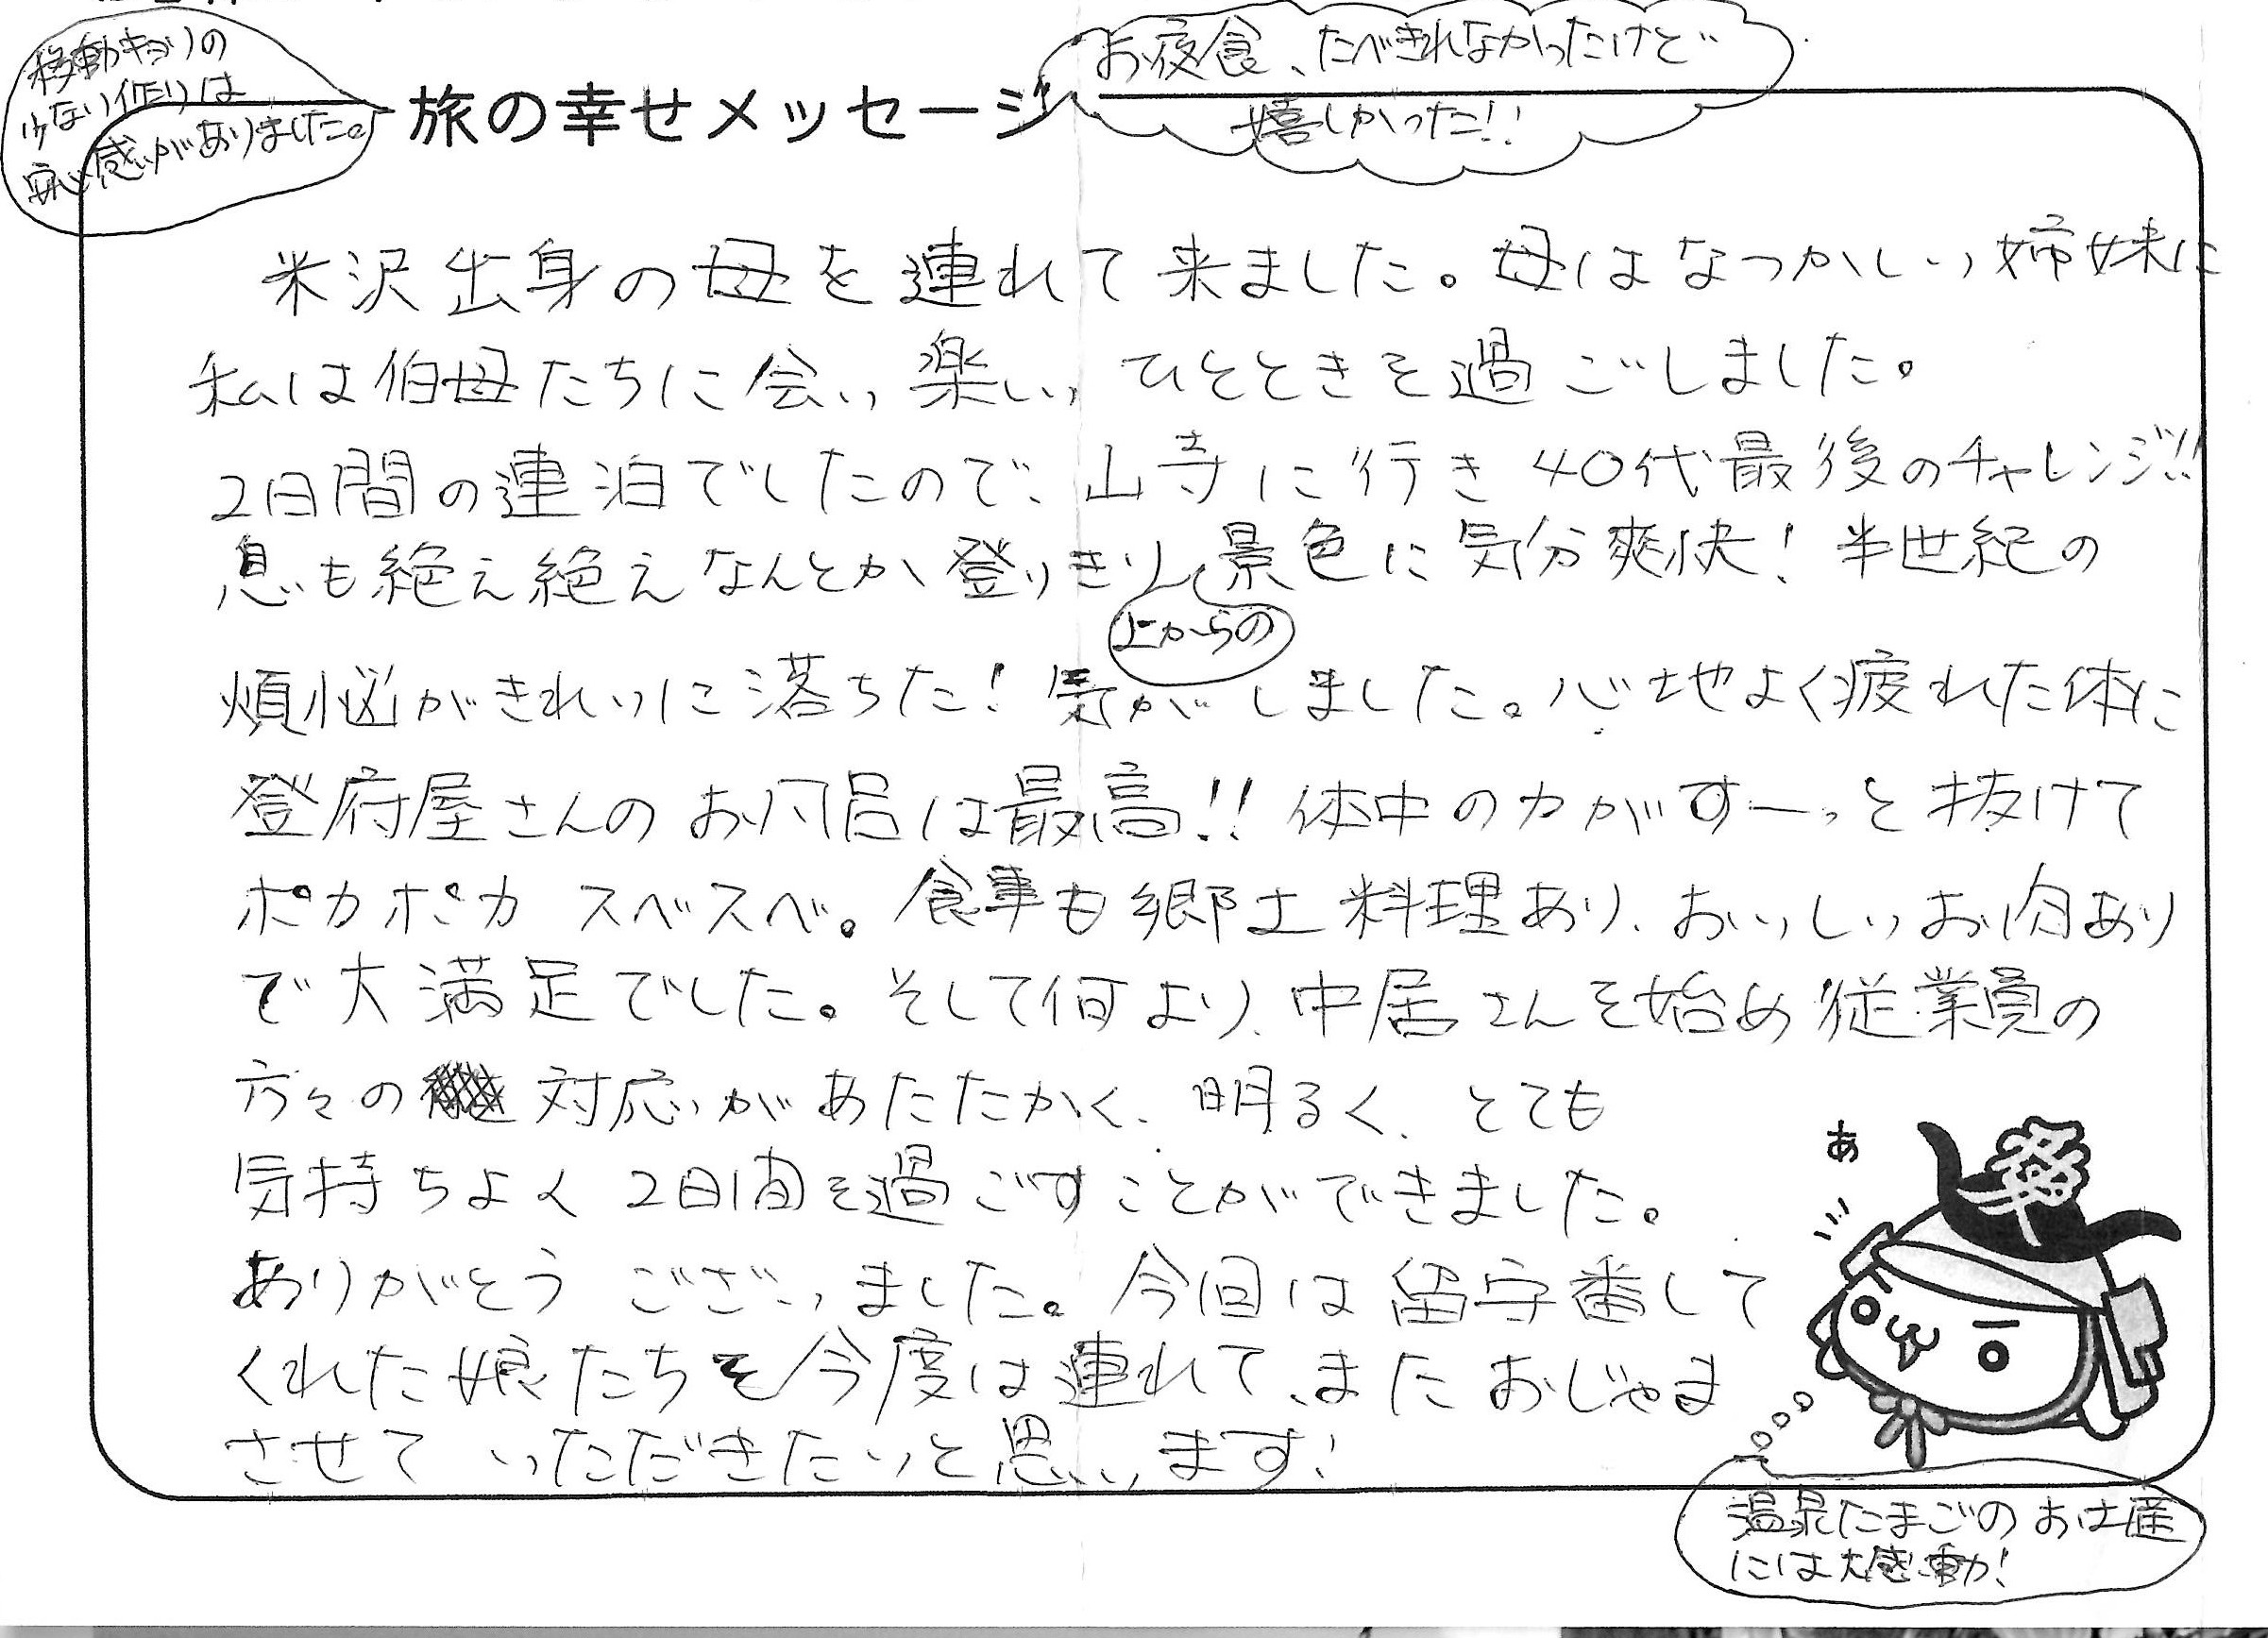 移動キョリの
少ない作りは
安心感がありました。
旅の幸せメッセージ
お夜食、たべきれなかったけど
嬉しかった!!
米沢出身の母を連れて来ました。母はなつかしい姉妹に
私は伯母たちに会い楽しいひとときを過ごしました。
2日間の連泊でしたので、山寺に行き40代最後のチャレンジ!!
息も絶え絶えなんとか登りきり、景色に気分爽快!半世紀の
上からの
煩悩がきれいに落ちた!気がしました。心地よく疲れた体に
登府屋さんのお風呂は最高!!体中の力がすーっと抜けて
ポカポカスベスベ。食事も郷土料理あり、おいしいお肉あり
で大満足でした。そして何より、中居さんを始め従業員の
方々の対応があたたかく、明るく、とても
気持ちよく2日間を過ごすことができました。
ありがとうございました。今回は留守番して
くれた娘たちを今度は連れて、またおじゃま
させていただきたいと思います!
あ
温泉たまごのお土産
には大感動!